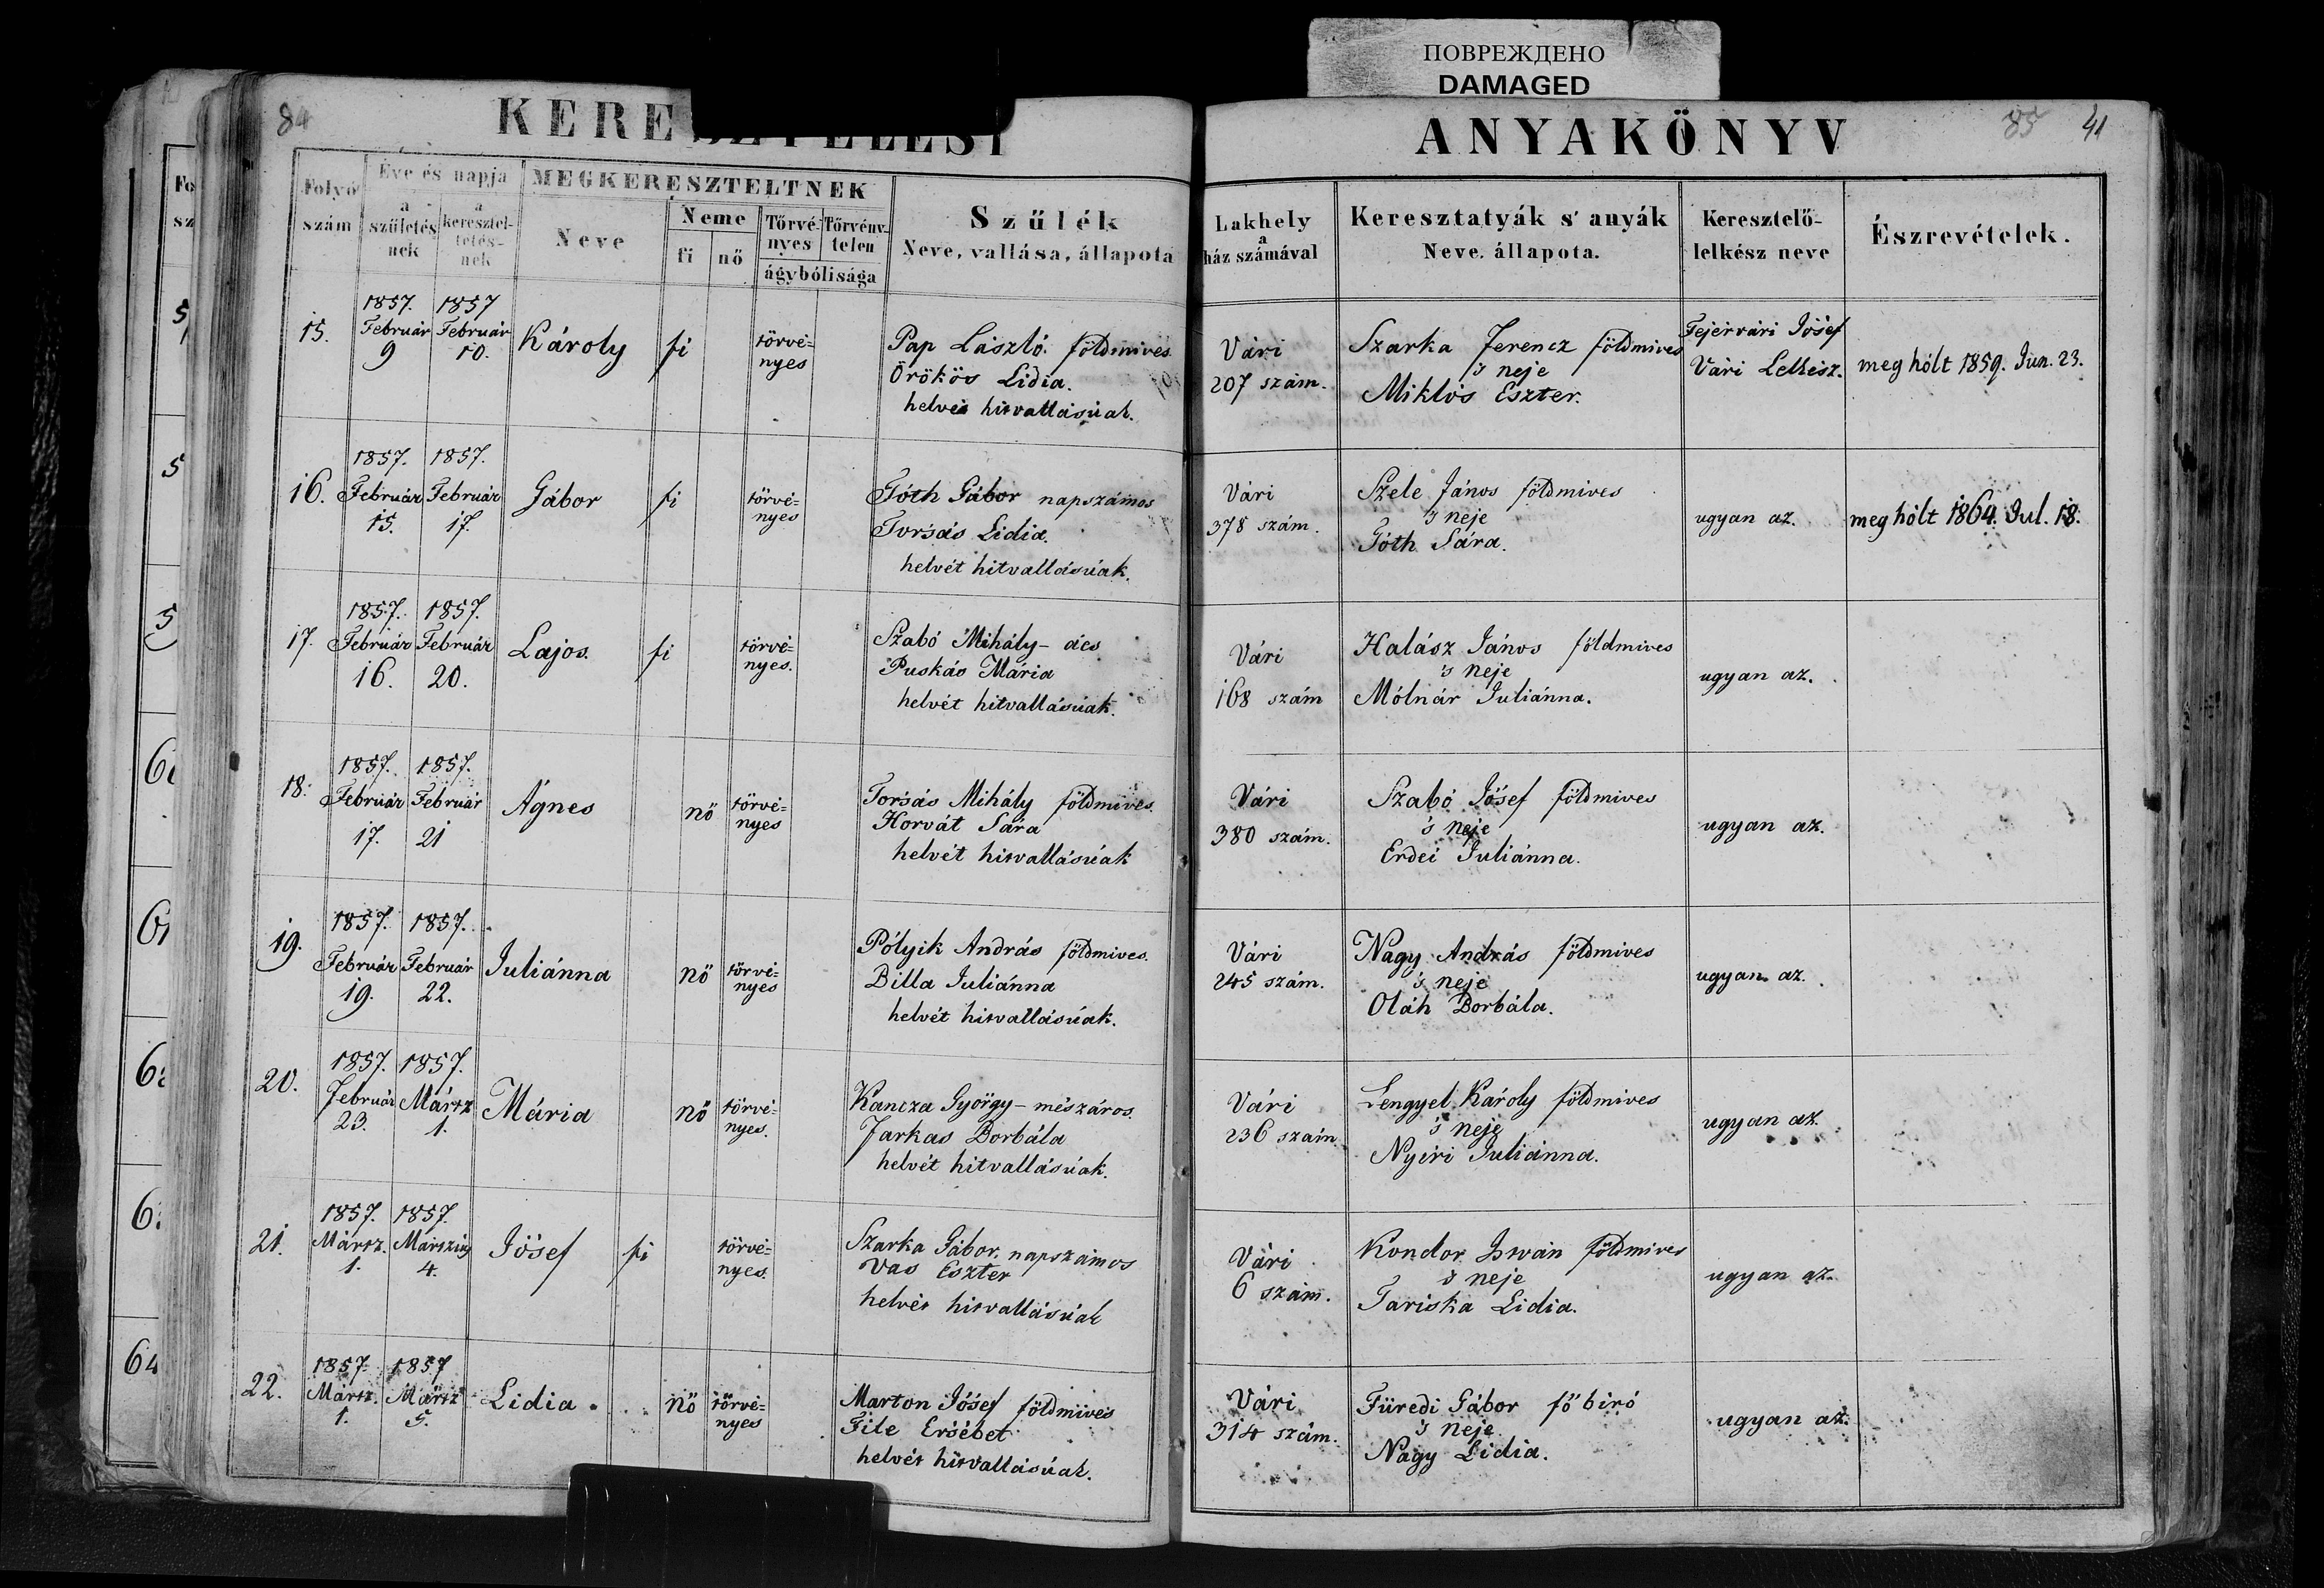 ПОВРЕЖДЕНО
DAMAGED
84
KERESZTELÉSI
ANYAKÖNYV
85 41
Folyó szám
Éve és napja
a születésnek
a keresteltetésnek
MEGKERESZTELTNEK
Neve
Neme
fi
nő
Törvényes
Törvénytelen
ágybólisága
Szűlék
Neve, vallása, állapota
Lakhely
a
ház számával
Keresztatyák s' anyák
Neve, állapota.
Keresztelő-
lelkész neve
Észrevételek.
15.
1857.
Február
9
1857
Február
10.
Károly
fi
törvé=
nyes
Pap László földmives
Örökös Lidia.
helvét hitvallásúak.
Vári
207 szám.
Szarka Ferencz földmives
's neje
Miklós Eszter.
Fejérvári Jósef
Vári Lelkész.
meg hólt 1859. Jun. 23.
16.
1857.
Február
15.
1857.
Február
17.
Gábor
fi
törvé-
nyes
Tóth Gábor napszámos
Torsás Lidia.
helvét hitvallásúak.
Vári
378 szám.
Szele János földmives
's neje
Tóth Sára.
ugyan az.
meg hólt 1864. Jul. 18.
17.
1857.
Február
16.
1857.
Február
20.
Lajos.
fi
törvé=
nyes.
Szabó Mihály - ács
Puskás Mária
helvét hitvallásúak.
Vári
168 szám
Halász János földmives
's neje
Mólnár Juliánna.
ugyan az.
18.
1857.
Február
17.
1857.
Február
21
Ágnes
nö
törvé=
nyes
Torsás Mihály földmives.
Horvát Sára
helvét hitvallásúak
Vári
380 szám.
Szabó Jósef földmives
's neje
Erdei Juliánna.
ugyan az.
19.
1857.
Február
19.
1857.
Február
22.
Juliánna
nö
törvé=
nyes
Pólyik András földmives.
Billa Juliánna
helvét hitvallásúak.
Vári
245 szám.
Nagy András földmives
's neje
Oláh Borbála.
ugyan az.
20.
1857.
Február
23.
1857.
Mártz
1.
Mária
nö
törvé=
nyes.
Kancza György - mészáros.
Farkas Borbála
helvét hitvallásúak.
Vári
236 szám
Lengyel Károly földmives
's neje
Nyiri Juliánna.
ugyan az.
21.
1857.
Mártz.
1.
1857.
4.
Jósef
fi
törvé=
nyes.
Szarka Gábor. napszámos
Vas Eszter
helvét hitvallásúak
Vári
6 szám.
Kondor István földmives
's neje
Tariska Lidia.
ugyan az.
22.
1857.
Mártz.
1.
1857
Mártz
5.
Lidia.
nö
törvé=
nyes
Marton Jósef földmives
File Ersébet
helvét hitvallásúak.
Vári
314 szám.
Füredi Gábor fő biró
's neje
Nagy Lidia.
ugyan az.